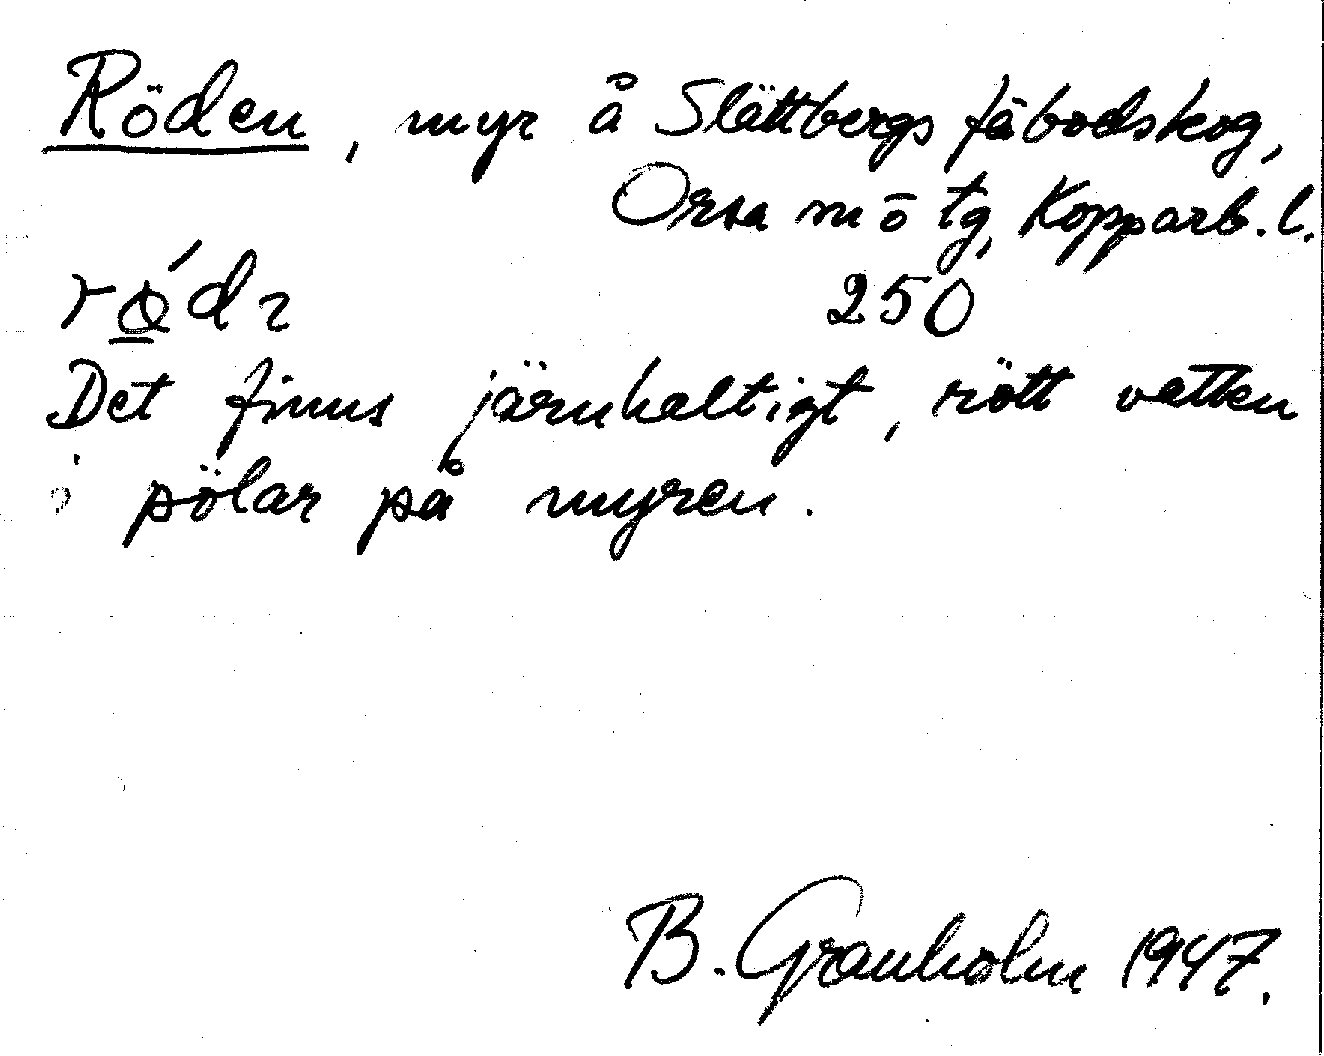 Röden, myr å Slättbergs fäbodskog,
Orsa m ö tg, Kopparb. l.
250
Det finns järnhaltigt, rött vatten
i pölar på myren.
B. Granholm 1947.